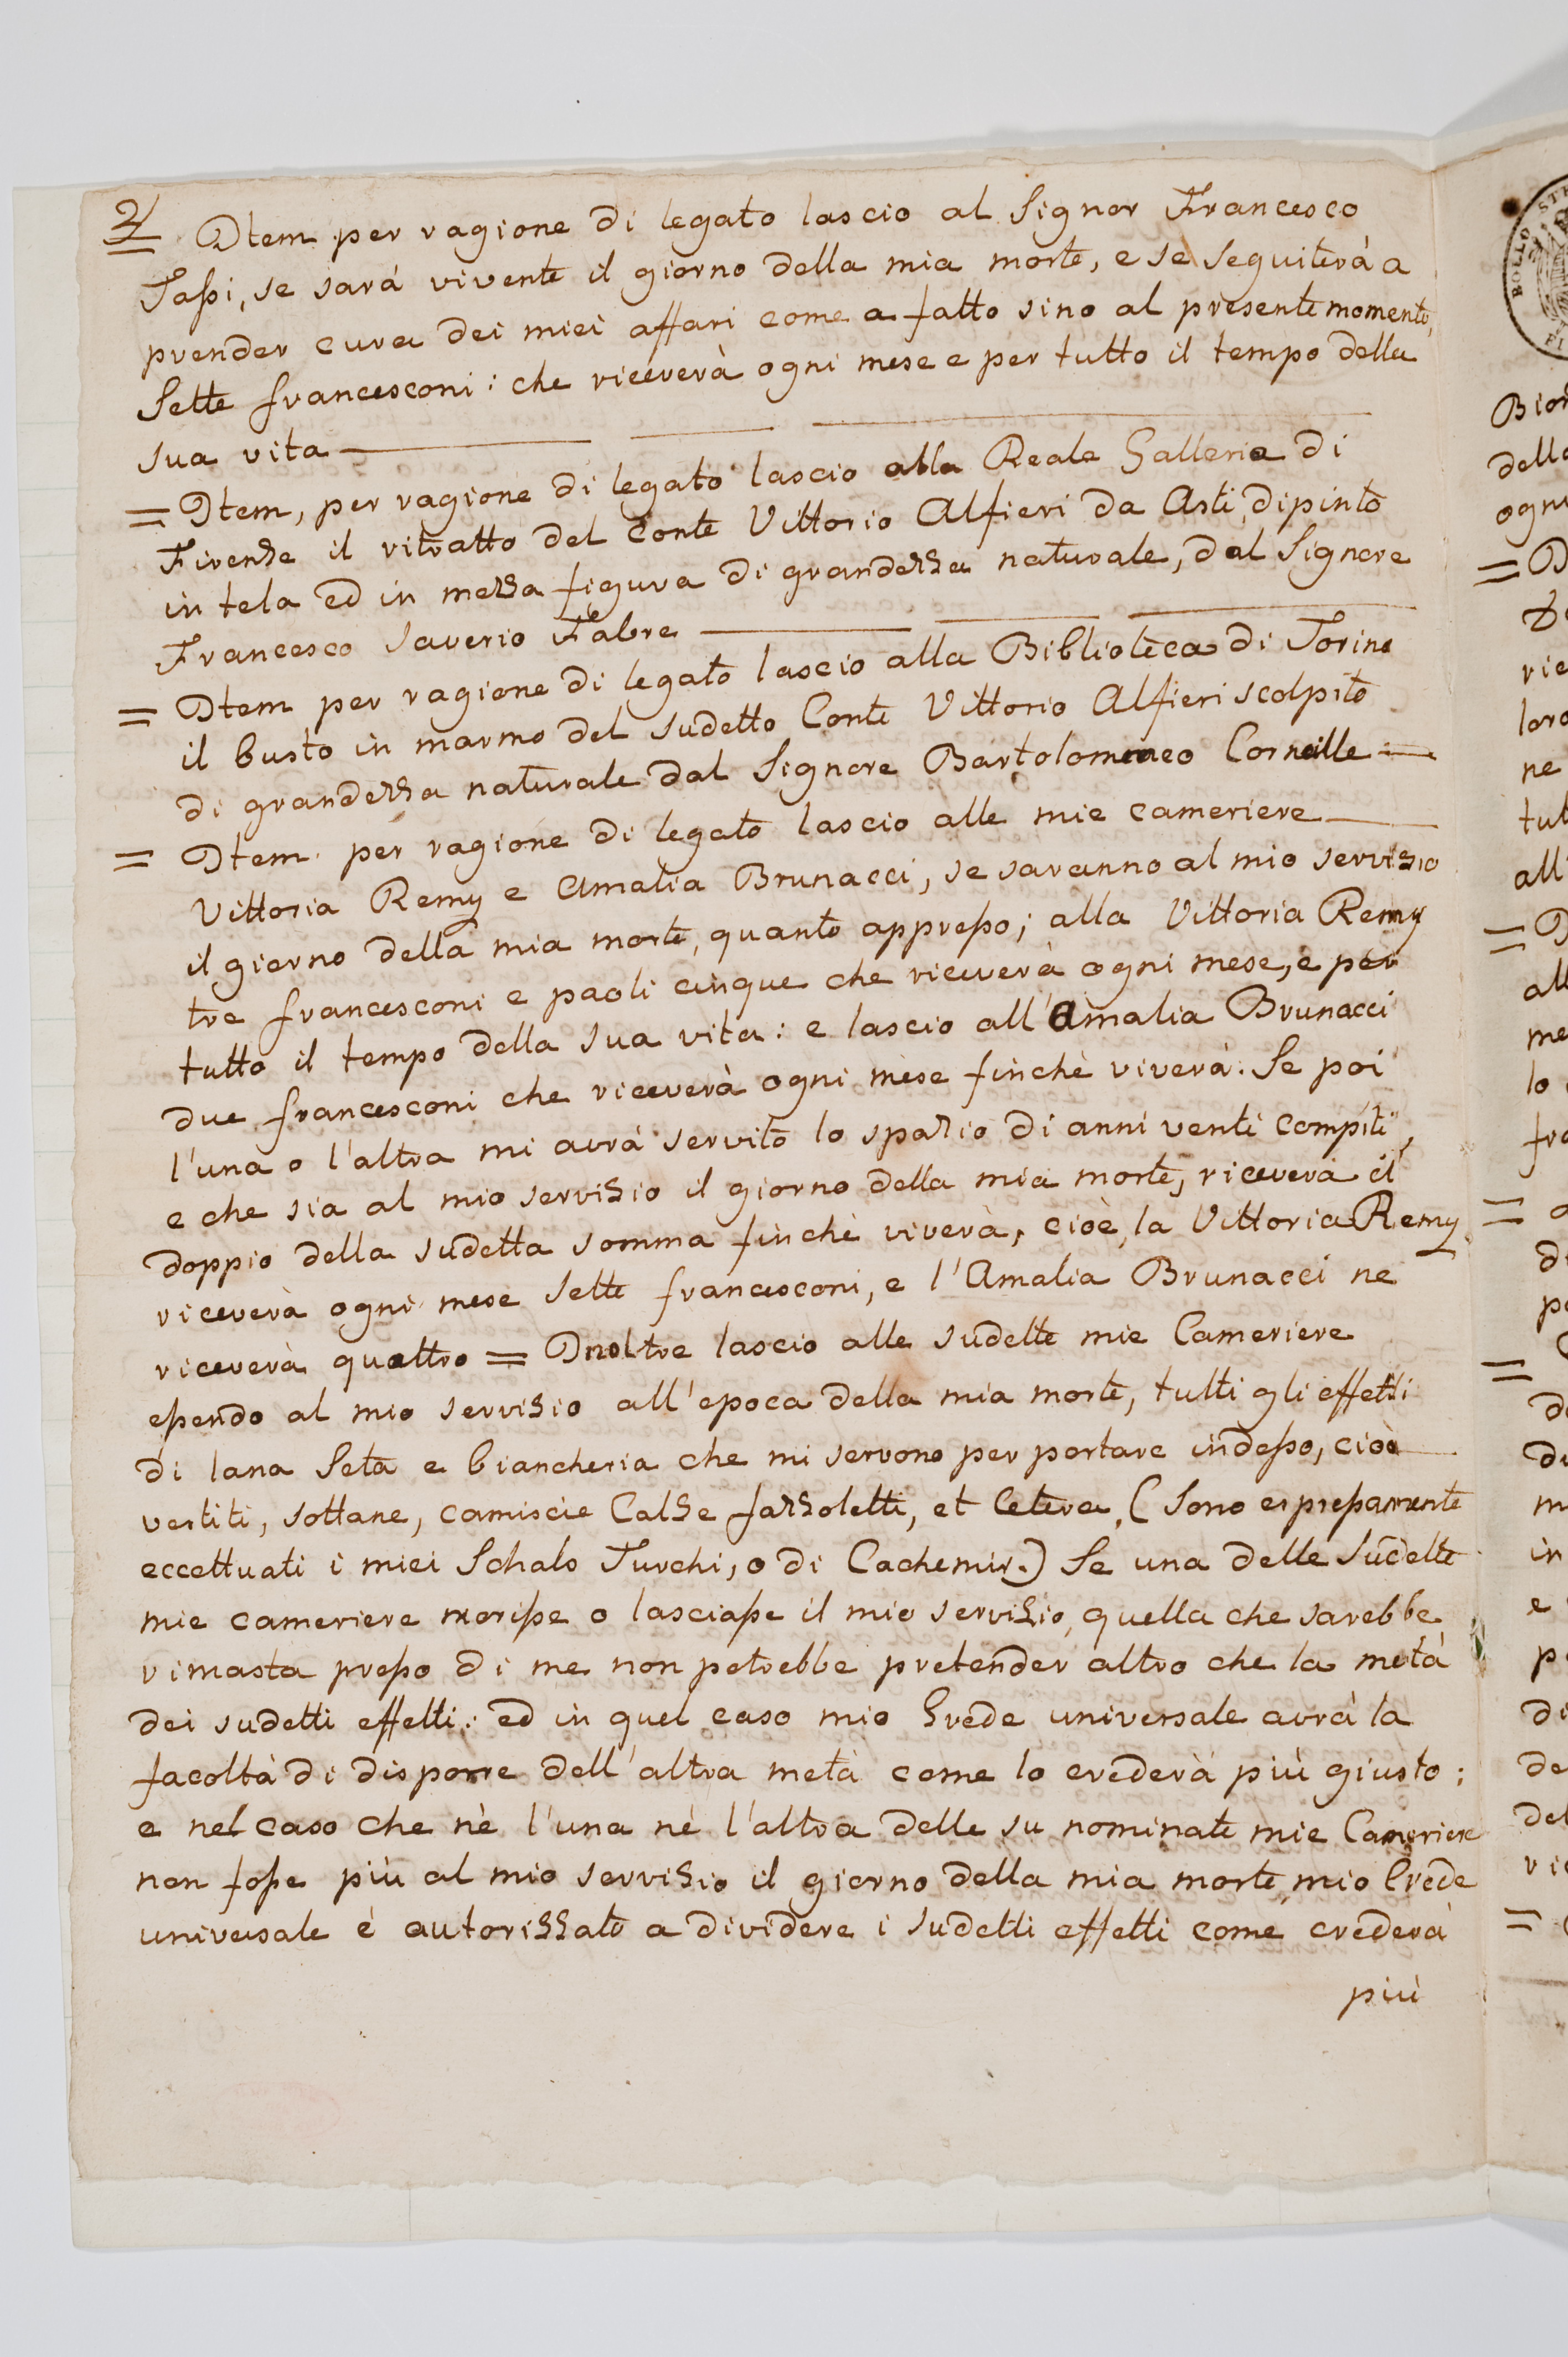 2 Item per ragione di legato lascio al Signor Francesco
Tassi, se sarà vivente il giorno della mia morte, e se seguiterà a
prender cura dei miei affari come a fatto sino al presente momento,
Sette francesconi: che riceverà ogni mese e per tutto il tempo della
sua vita
= Item, per ragione di legato lascio alla Reale Galleria di
Firenze il ritratto del Conte Vittorio Alfieri da Asti, dipinto
in tela ed in mezza figura di grandezza naturale, dal Signore
Francesco Saverio Fabre
= Item per ragione di legato lascio alla Biblioteca di Torino
il busto in marmo del sudetto Conte Vittorio Alfieri scolpito
di grandezza naturale dal Signore Bartolommeo Corneille
= Item per ragione di legato lascio alle mie cameriere
Vittoria Remy e Amalia Brunacci, se saranno al mio servizio
il giorno della mia morte, quanto appresso; alla Vittoria Remy
tre francesconi e paoli cinque che riceverà ogni mese, e per
tutto il tempo della sua vita: e lascio all'Amalia Brunacci
due francesconi che riceverà ogni mese finchè viverà. Se poi
l'una o l'altra mi avrà servito lo spazio di anni venti compiti,
e che sia al mio servizio il giorno della mia morte, riceverà il
doppio della sudetta somma finchè viverà, cioè, la Vittoria Remy
riceverà ogni mese sette francesconi, e l'Amalia Brunacci ne
riceverà quattro = Inoltre lascio alle sudette mie Cameriere
essendo al mio servizio all'epoca della mia morte, tutti gli effetti
di lana Seta e biancheria che mi servono per portare indosso, cioè
vestiti, sottane, camiscie Calze fazzoletti, et Cetera, (sono espressamente
eccettuati i miei Schals Turchi, o di Cachemir.) Se una delle Sudette
mie cameriere morisse o lasciasse il mio servizio, quella che sarebbe
rimasta presso di me non potrebbe pretender altro che la metà
dei sudetti effetti: ed in quel caso mio Erede universale avrà la
facoltà di disporre dell'altra metà come lo crederà più giusto;
e nel caso che nè l'una nè l'altra delle su nominate mie Cameriere
non fosse più al mio servizio il giorno della mia morte, mio Erede
universale è autorizzato a dividere i sudetti effetti come crederà
più
BOLLO
dello
ogni
=
rie
loro
ne
tut
all'
=
me
lo
=
di
=
m
in
e
di
de
del
=